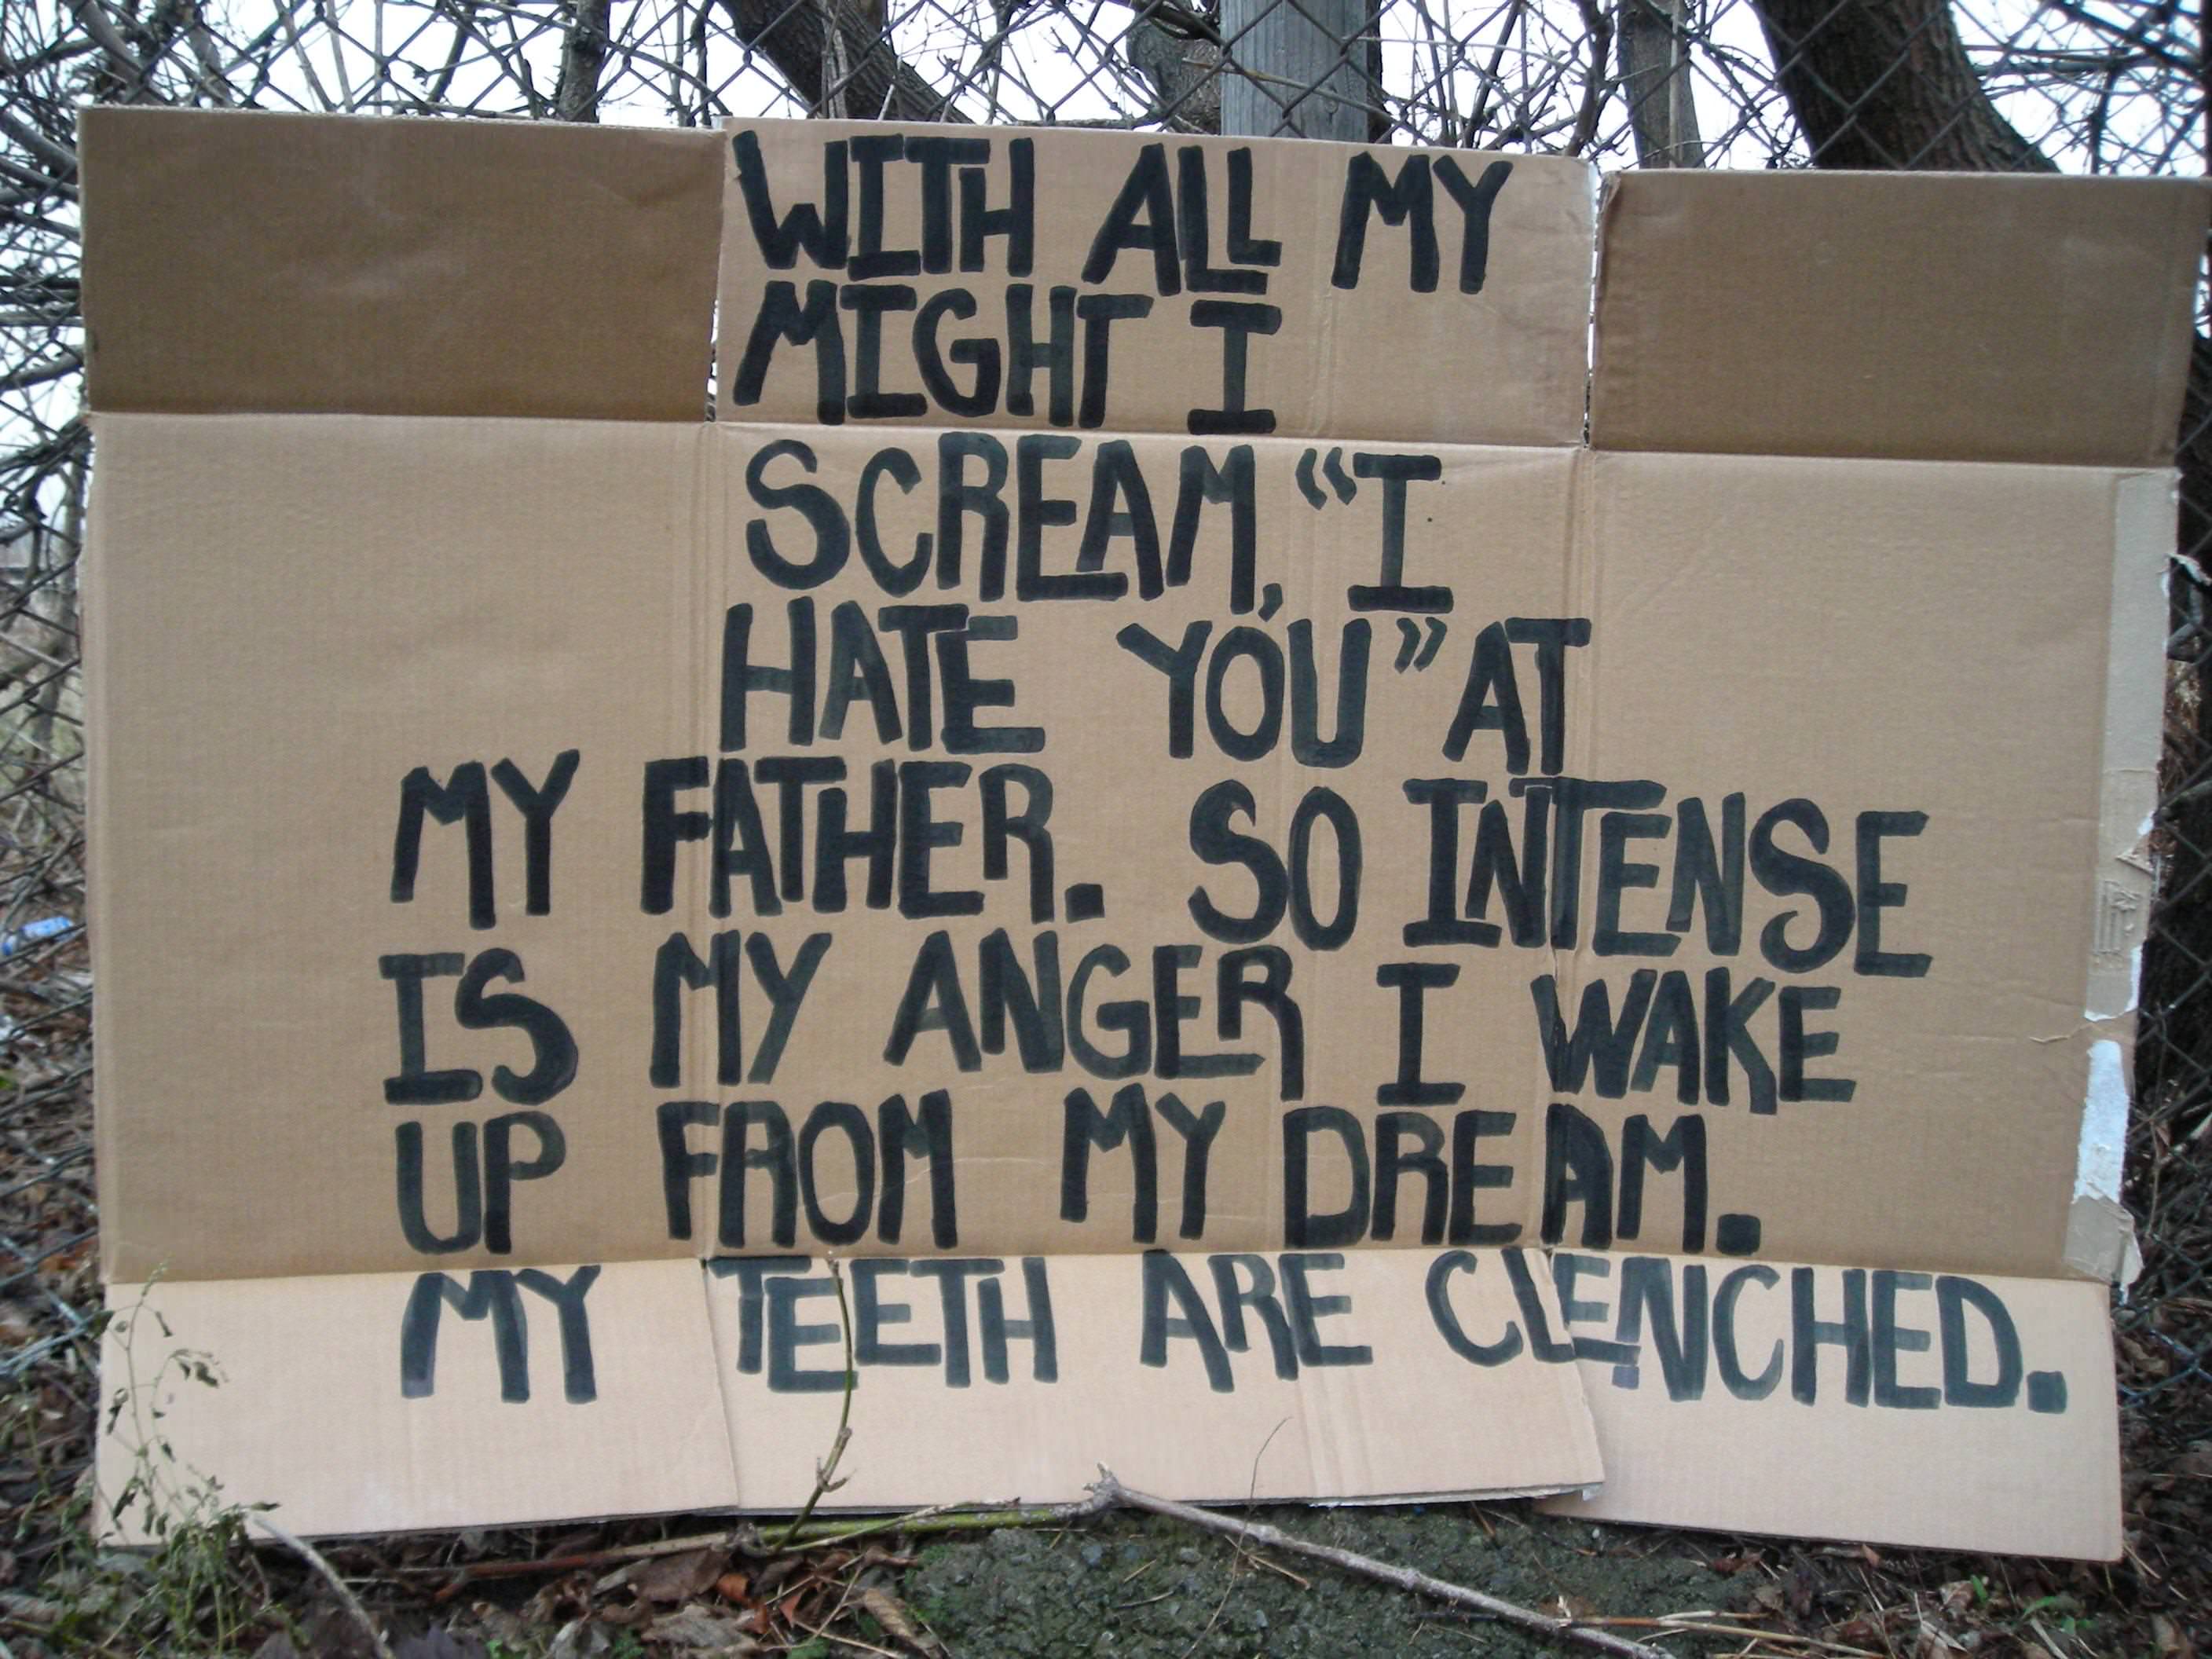 WITH ALL MY
MIGHT I
SCREAM, “I
HATE YOU” AT
MY FATHER. SO INTENSE
IS MY ANGER I WAKE
UP FROM MY DREAM.
MY TEETH ARE CLENCHED.